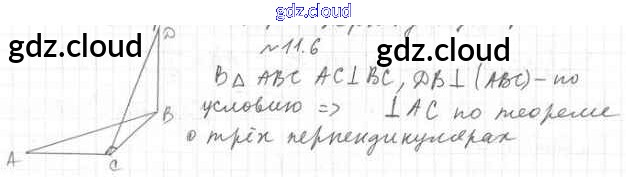 gdz.cloud
№11.6
gdz.cloud
gdz.cloud
D
В △ ABC AC⊥BC, DB⊥(ABC) – по
условию => ⊥AC по теореме
о трёх перпендикулярах
B
A
C